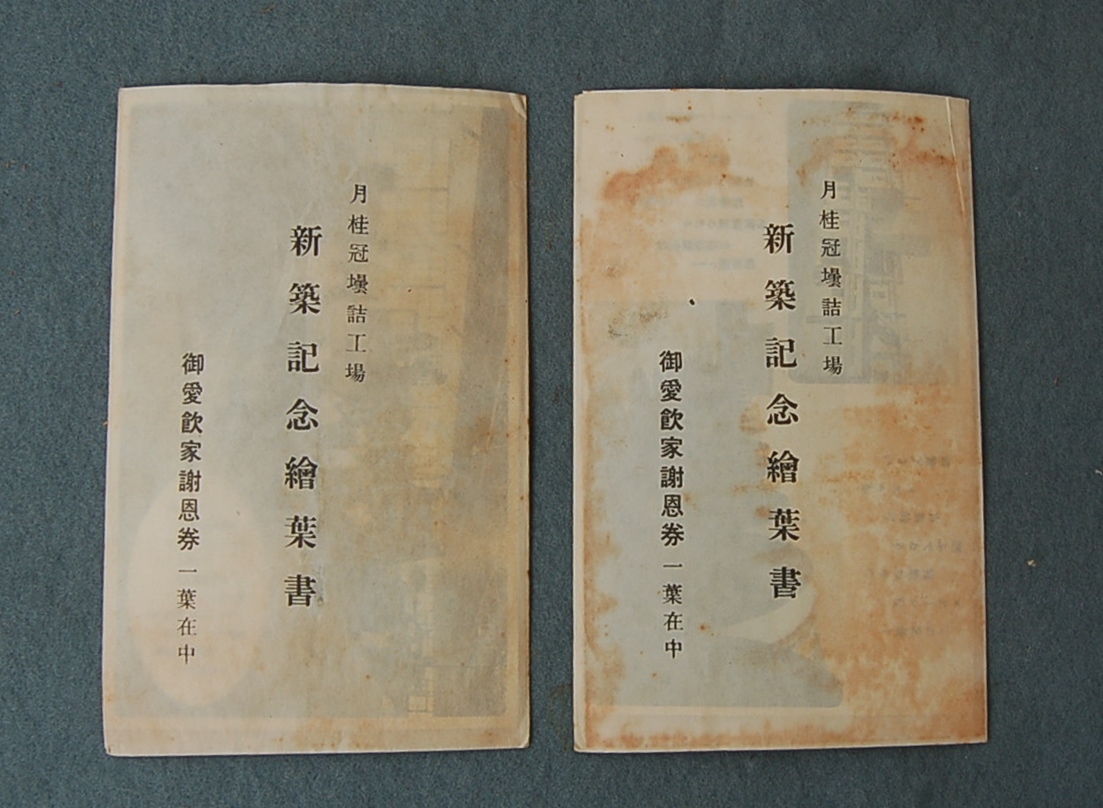 月桂冠壜詰工場
新築記念繪葉書
御愛飮家謝恩券一葉在中
月桂冠壜詰工場
新築記念繪葉書
御愛飮家謝恩券一葉在中